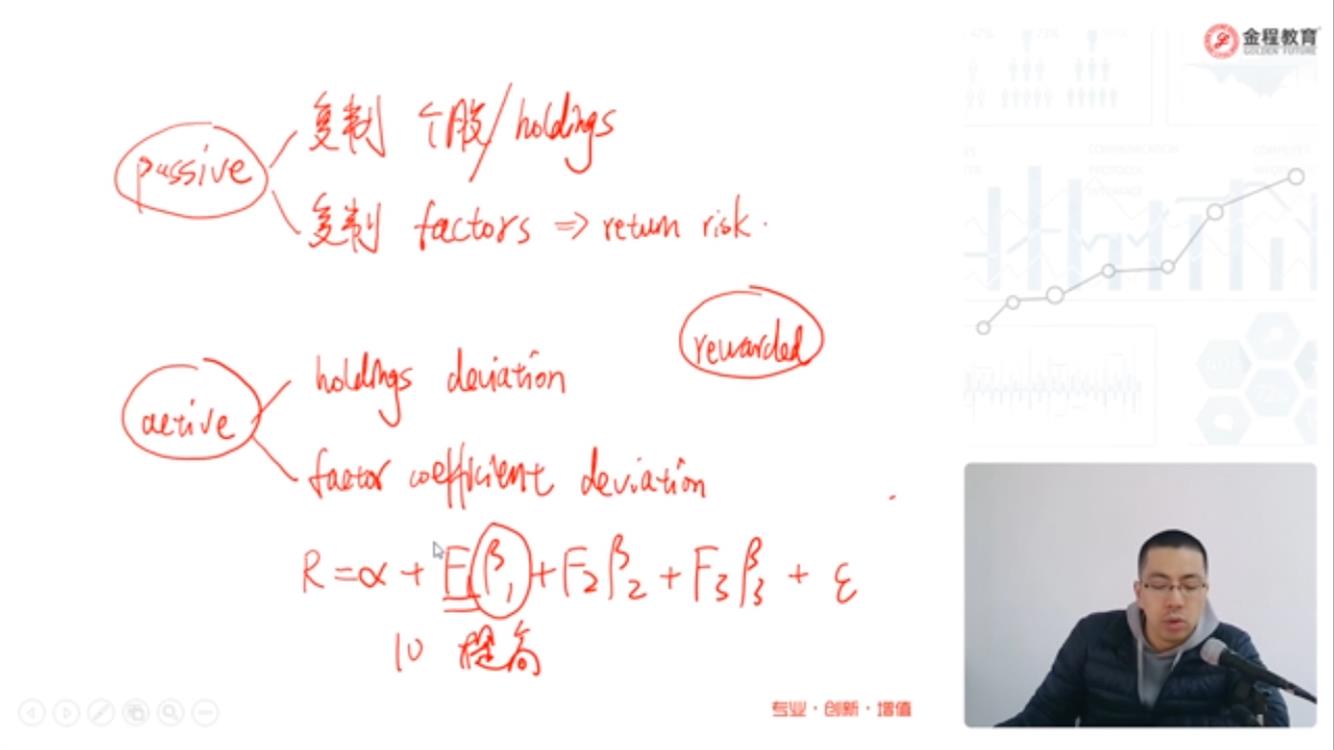 金程教育
GOLDEN FUTURE
passive
复制 个股/holdings
复制 factors ⇒ return risk.
rewarded
active
holdings deviation
factor coefficient deviation
R = α + F₁β₁ + F₂β₂ + F₃β₃ + ε
10 提高
专业·创新·增值